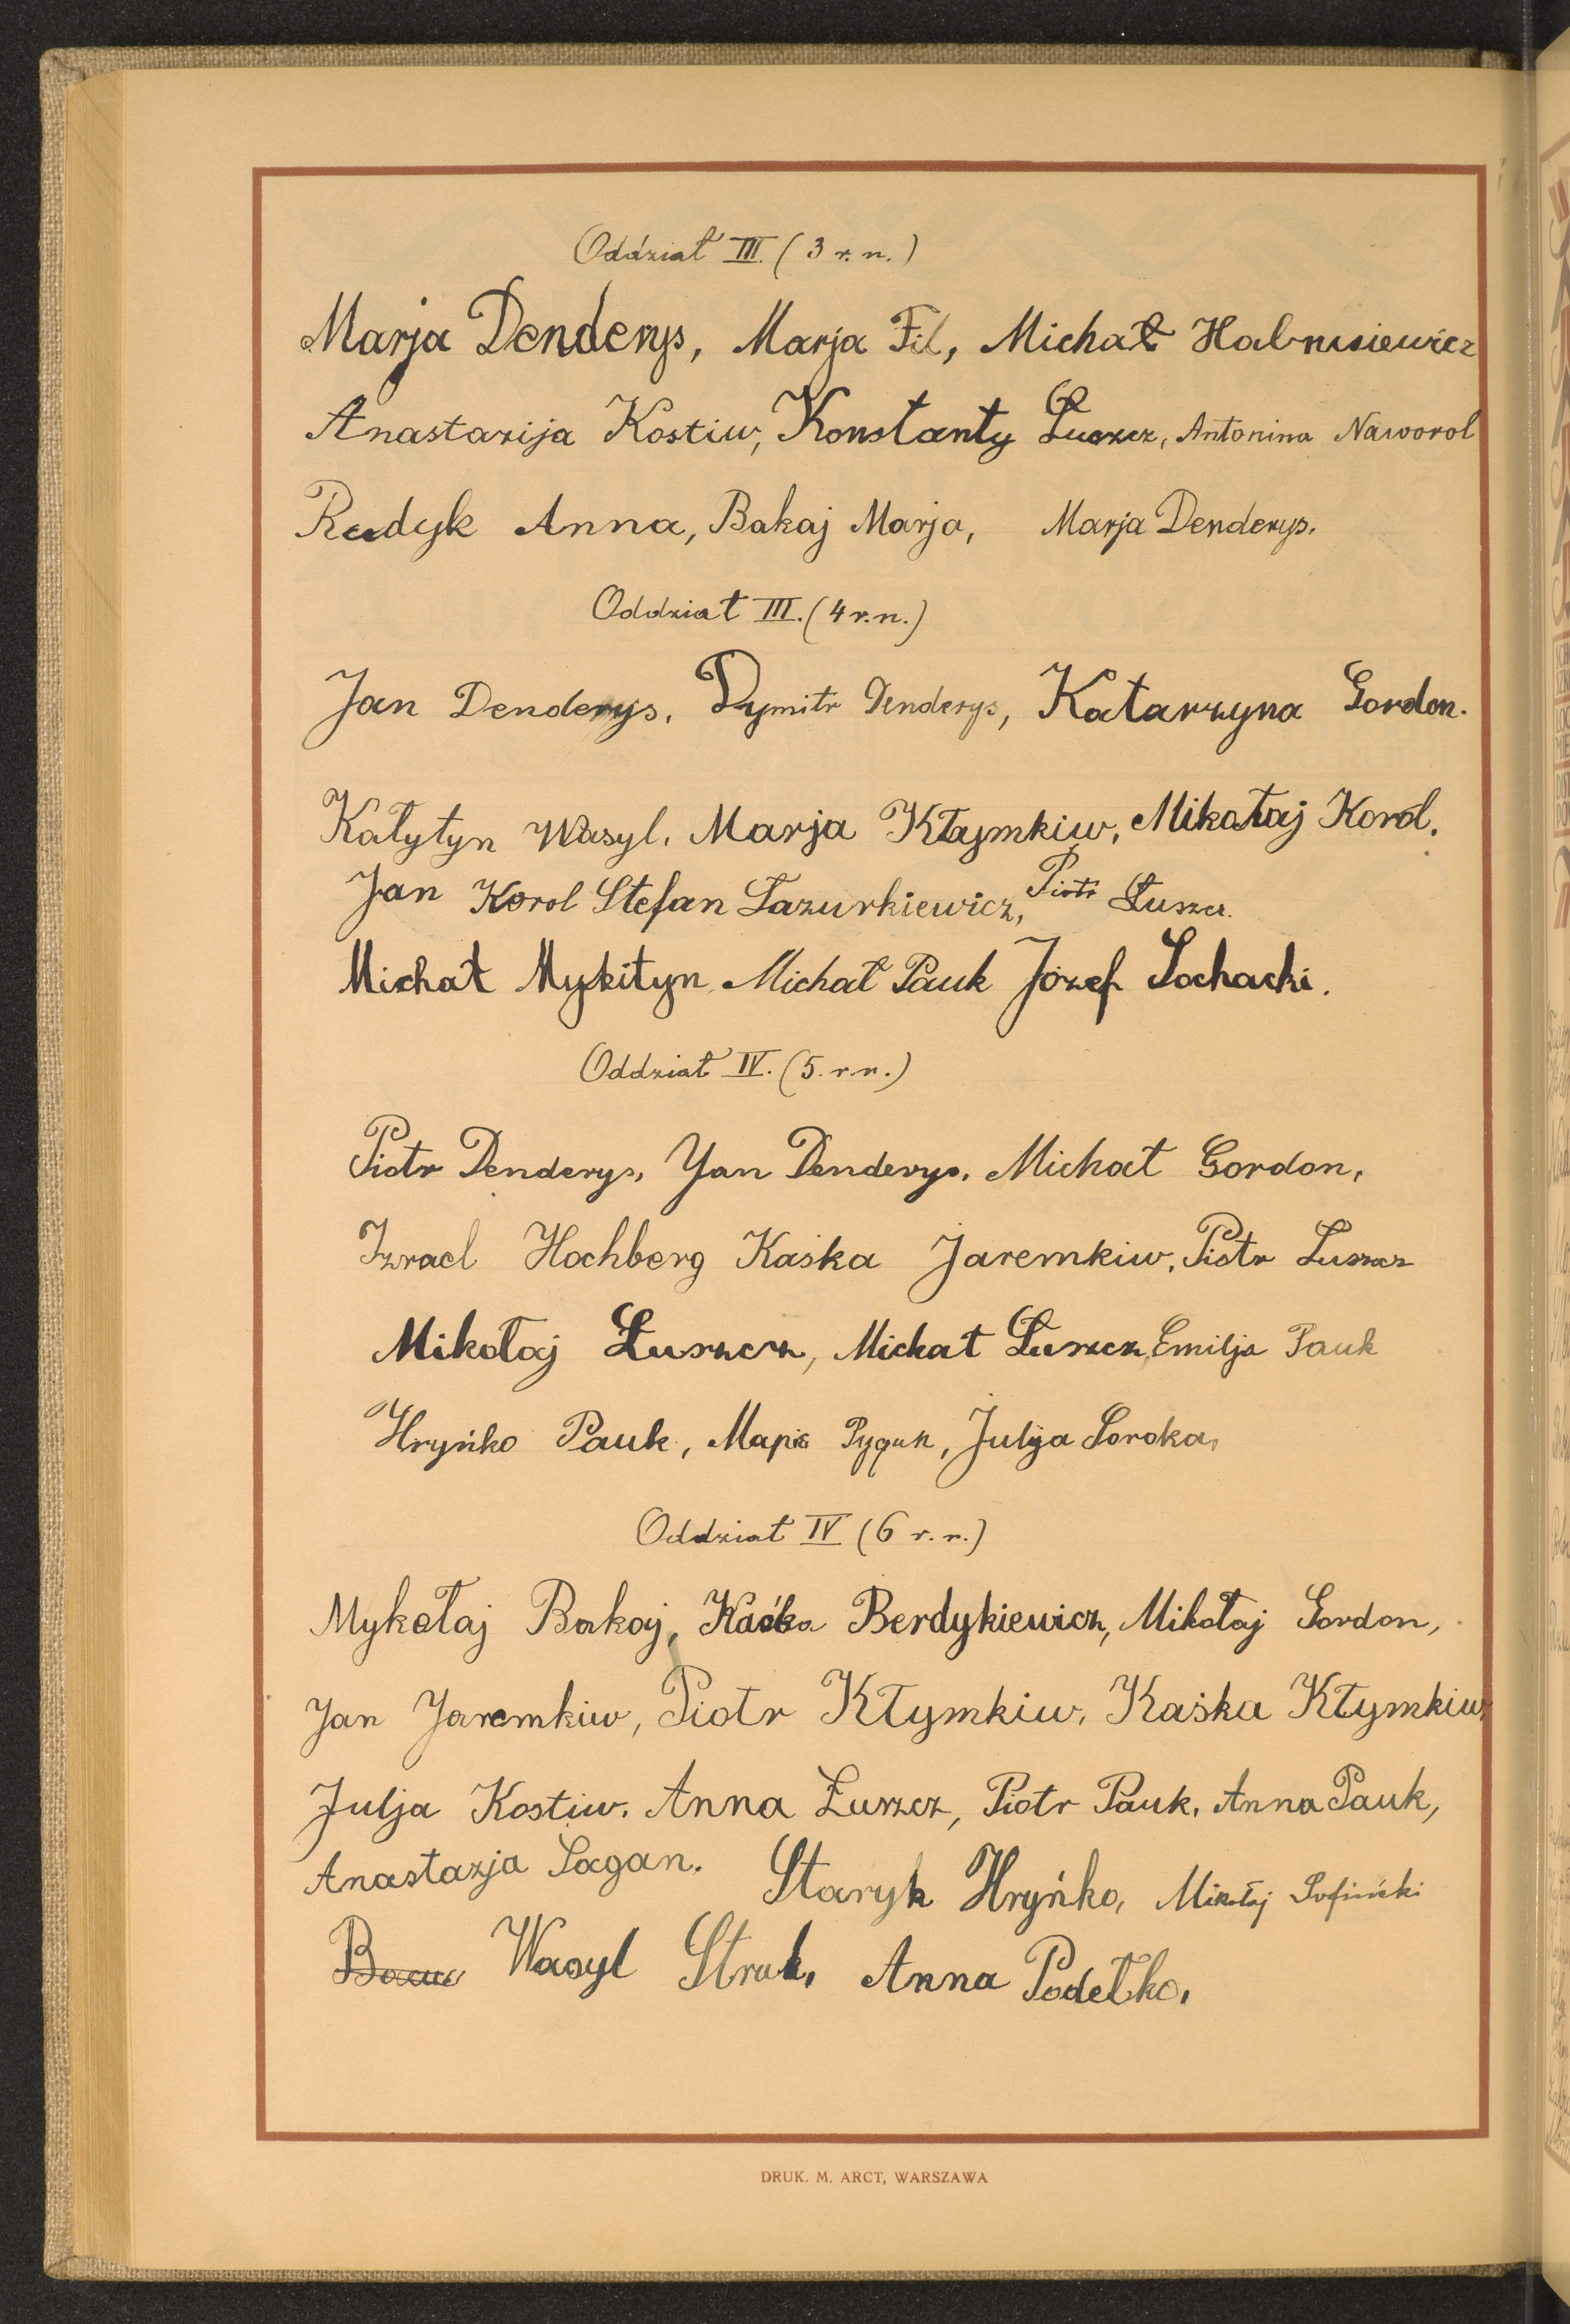 Oddział III. (3 r. n.)
Marja Denderys, Marja Fil, Michał
Anastazija Kostiw, Konstanty Łuszcz, Antonina Naworol
Rudyk Anna, Bakaj Marja, Marja Denderys.
Oddział III. (4 r. n.)
Jan Denderys, Dymitr Denderys, Katarzyna Gordon.
Kałytyn Wasyl. Marja Kłaymkiw, Mikołaj Korol.
Jan Korol Stefan Łazurkiewicz, Piotr Łuszcz.
Michał Mykityn, Michał Pauk Józef Sochacki.
Oddział IV. (5. r. n.)
Piotr Denderys, Yan Denderys, Michał Gordon,
Izrael Hochberg Kaśka Jaremkiw, Piotr Luszcz
Mikołaj Łuszczz, Michał Łuszcz, Emilja Pauk
Hryńko Pauk, Маріа, Julija Soroka,
Oddział IV (6 r. n.)
Mykołaj Bakaj, Kaśka Berdykiewicz, Mikołaj Gordon,
Jan Jaremkiw, Piotr Kłymkiw, Kaśka Kłymkiw,
Julja Kostiw. Anna Łuszcz, Piotr Pauk, Anna Pauk,
Anastazja Sagan. Staryk Hryńko, Mikołaj
Wasyl Struk, Anna Podełko,
DRUK. M. ARCT, WARSZAWA